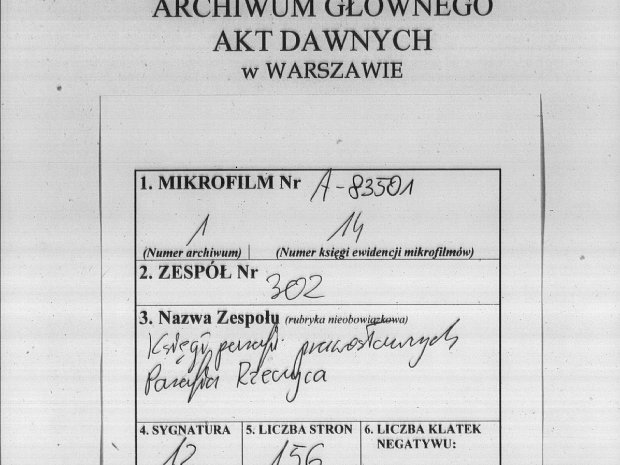 ARCHIWUM GŁÓWNEGO
AKT DAWNYCH
w WARSZAWIE
1. MIKROFILM Nr A-83501
1 14
(Numer archiwum) (Numer księgi ewidencji mikrofilmów)
2. ZESPÓŁ Nr
302
3. Nazwa Zespołu (rubryka nieobowiązkowa)
Księgi parafi. prawosławnych
Parafia Rzeczyca
4. SYGNATURA 5. LICZBA STRON 6. LICZBA KLATEK
NEGATYWU:
12 156